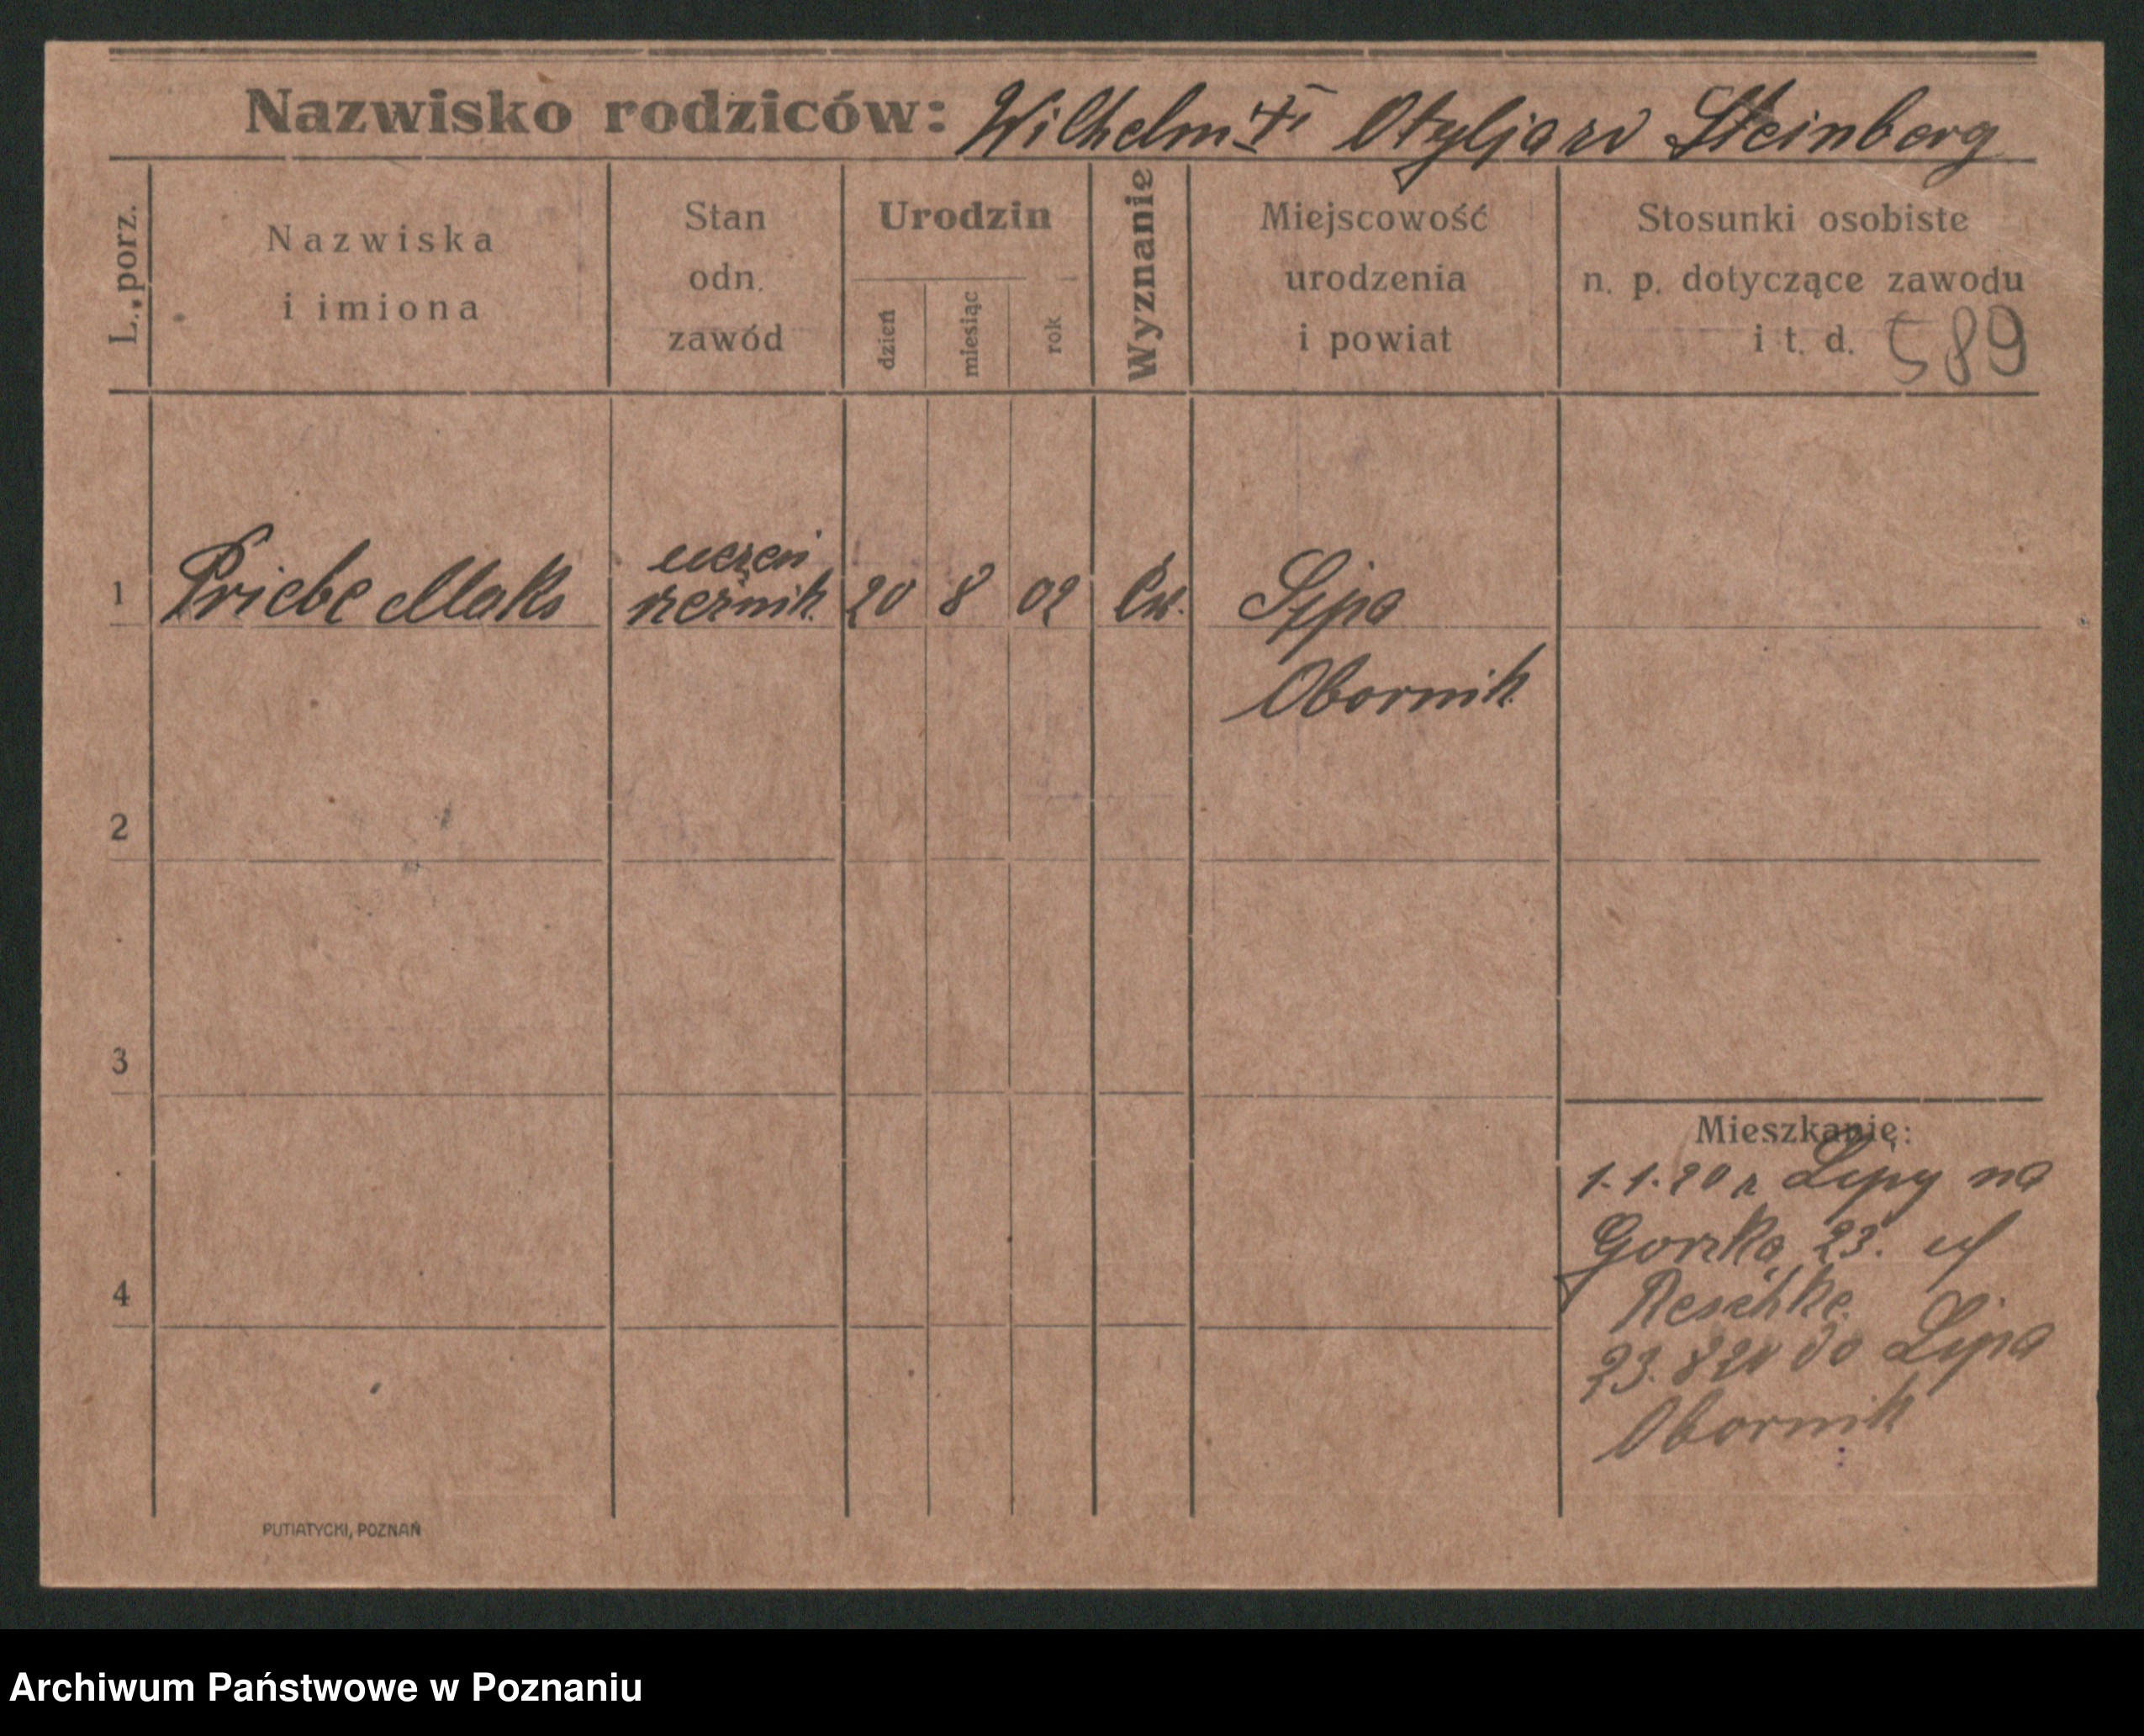 Nazwisko rodziców: Wilhelm + i Otylja rd Steinberg
L. porz.
Nazwiska
i imiona
Stan
odn.
zawód
Urodzin
dzień
miesiąc
rok
Wyznanie
Miejscowość
urodzenia
i powiat
Stosunki osobiste
n. p. dotyczące zawodu
i t. d. 589
uczeń
1 Priebe Maks rzeźnik. 20 8 02 Ew. Lipa
Obornik.
2
3
4
Mieszkanie:
1.1.20 z Lipy na
Gorska 23.
Reschke
23.8 20 do Lipa
Obornik
PUTIATYCKI, POZNAŃ
Archiwum Państwowe w Poznaniu